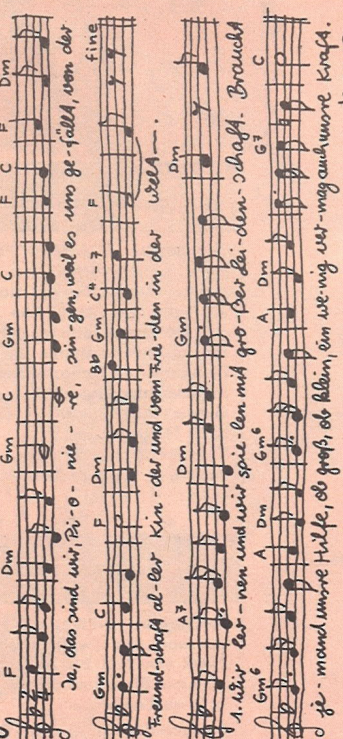 F Dm Gm C Gm C F C F Dm
Ja, das sind wir, Pi-o-nie-re, sin-gen, weil es uns ge-fällt, von der
Gm C F Dm Bb Gm C#-7 F fine
Freund-schaft al-ler Kin-der und vom Frie-den in der Welt—.
A7 Dm Gm Dm
1. Wir ler-nen und wir spie-len mit gro-ßer Lei-den-schaft. Braucht
Gm6 A Dm Gm6 A Dm G7 C
je-mand unsre Hilfe, ob groß, ob klein, ein we-nig ver-mag auch unsre Kraft.